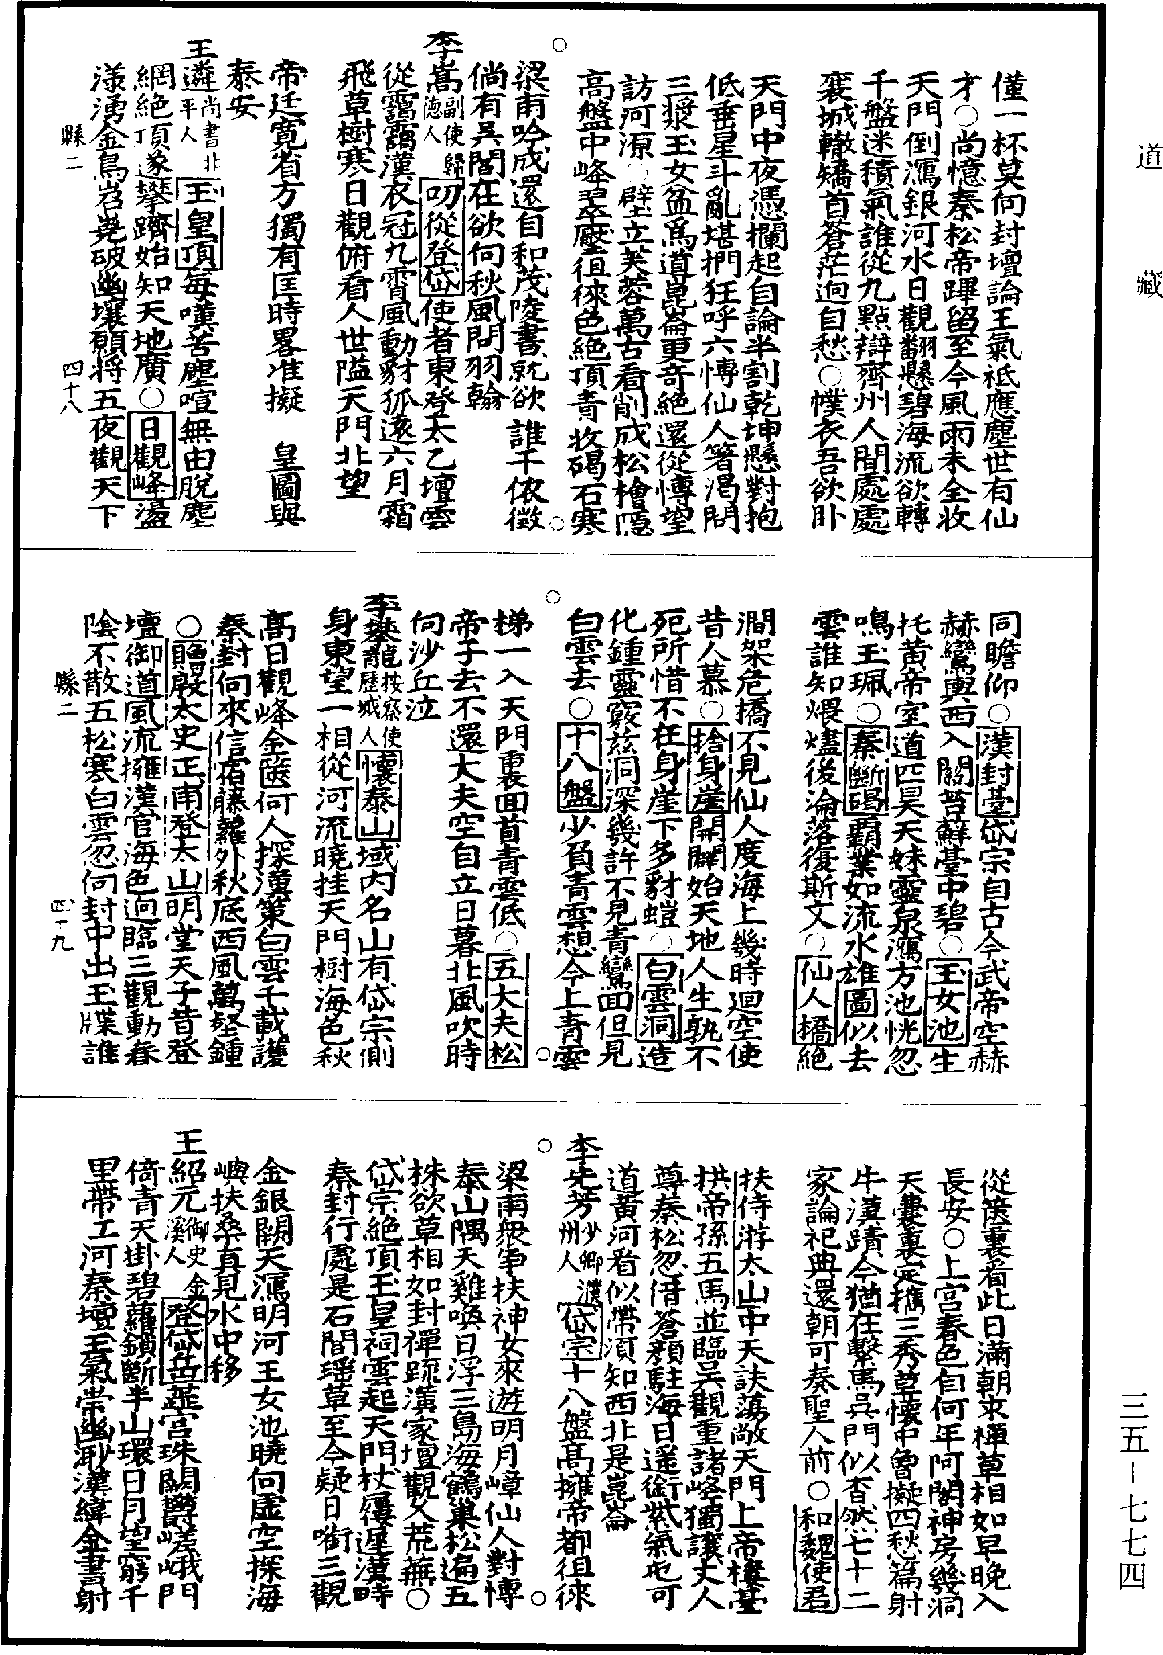 道藏
三五－七七四
僅一杯莫向封壇論王氣祗應塵世有仙
才○尚憶秦松帝蹕留至今風雨未全收
天門倒瀉銀河水日觀翻懸碧海流欲轉
千盤迷積氣誰從九點辯齊州人間處處
襄城轍矯首蒼茫逈自愁○樸衣吾欲卧
天門中夜憑攔起自論半割乾坤懸對抱
低垂星斗亂堪捫狂呼六愽仙人箸渴問
三漿玉女盆爲道崑崙更奇絕還從愽望
訪河源○壁立芙蓉萬古看削成松檜隱
高盤中峰翠壓徂徠色絕頂青收碣石寒
梁甫吟成還自和茂陵書就欲誰千依徵
倘有吳閶在欲向秋風問羽翰
李嵩副使歸德人叨從登岱使者東登太乙壇雲
從靄靄漢衣冠九霄風動豺狐遠六月霜
飛草樹寒日觀俯看人世隘天門北望
帝廷寬省方獨有匡時畧准擬 皇圖與
泰安
王遴尚書北平人玉皇頂每嘆苦塵喧無由脫塵
網絕頂遂攀躋始知天地廣○日觀峰盪
漾湧金烏岧嶤破幽壤願將五夜觀天下
縣二 四十八
同瞻仰○漢封臺岱宗自古今武帝空赫
赫鸞輿西入關苔蘚臺中碧○玉女池生
托黄帝室道匹昊天妹靈泉瀉方池恍忽
鳴玉珮○秦斷碣霸業如流水雄圖似去
雲誰知煨燼後淪落復斯文○仙人橋絕
澗架危橋不見仙人度海上幾時迴空使
昔人慕○捨身崖開闢始天地人生孰不
死所惜不在身崖下多豺螘○白雲洞造
化鍾靈竅兹洞深幾許不見青鸞面但見
白雲去○十八盤少負青雲想今上青雲
梯一入天門裏面首青雲低○五大夫松
帝子去不還大夫空自立日暮北風吹時
向沙丘泣
李攀龍按察使歷城人懷泰山域内名山有岱宗側
身東望一相從河流曉挂天門樹海色秋
高日觀峰金篋何人探漢策白雲千載護
秦封向來信宿藤蘿外秋底西風萬壑鍾
○贈殷太史正甫登太山明堂天子昔登
壇御道風流擁漢官海色逈臨三觀動春
陰不散五松寒白雲忽向封中出玉牒誰
縣二 四十九
從篋裏看此日滿朝求禪草相如早晚入
長安○上宮春色自何年阿閣神房幾洞
天囊裏定攜三秀草懷中曾擬四秋篇射
牛漢蹟今猶在繫馬吳門似杳然七十二
家論祀典還朝可奏聖人前○和魏使君
扶侍游太山中天訣蕩敞天門上帝樓臺
拱帝孫五馬並臨吳觀重諸峰獨讓丈人
尊秦松忽借蒼顔駐海日遥銜紫氣屯可
道黄河看似帶須知西北是崑崙
李先芳少卿濮州人岱宗十八盤高擁帝都徂徠
梁甫衆爭扶神女來遊明月嶂仙人對愽
泰山隅天雞喚日浮三島海鶴巢松遍五
株欲草相如封禪疏漢家壇觀久荒蕪○
岱宗絕頂玉皇祠雲起天門杖屨遲漢時
秦封行處是石間瑶草至今疑日啣三觀
金銀闕天瀉明河玉女池曉向虛空探海
嶼扶桑真見水中移
王紹元御史金溪人登岱岳蕋宮珠闕鬱嵯峨門
倚青天掛碧蘿鎖斷半山環日月望窮千
里帶工河秦壇王氣常幽耿漢緯金書射